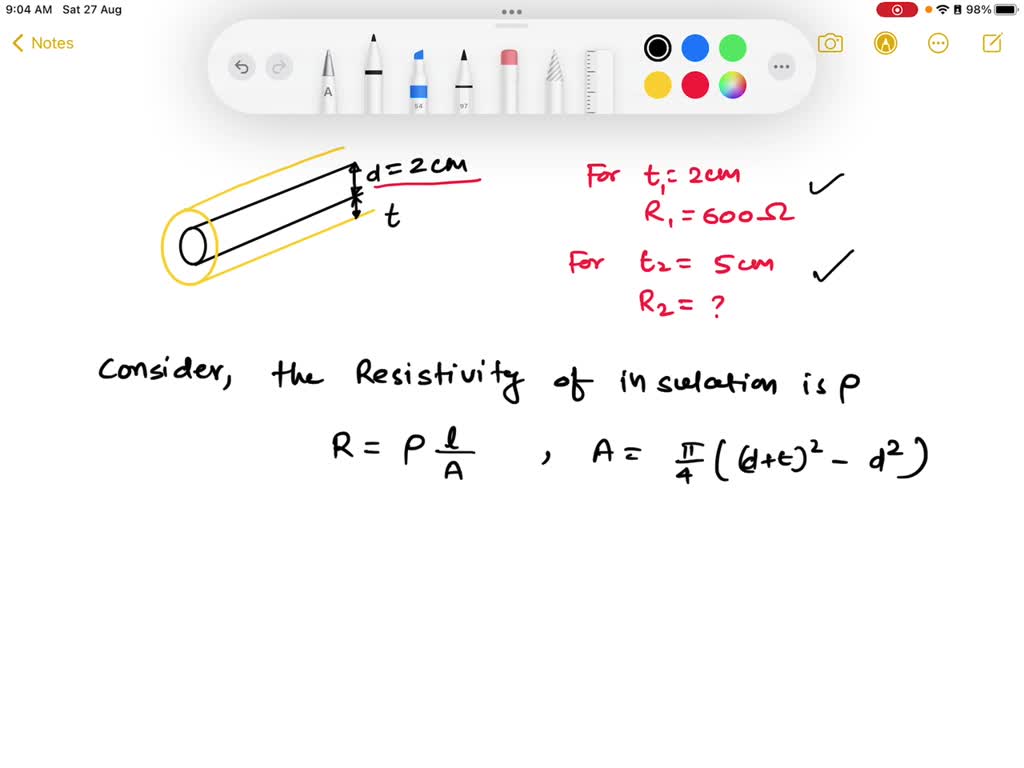 9:04 AM Sat 27 Aug
98%
Notes
A
54
97
d = 2 cm
t
For t₁ = 2cm
R₁ = 600Ω
For t₂ = 5cm
R₂ = ?
Consider, the Resistivity of insulation is ρ
R = ρ l/A , A = π/4 ((d+t)² - d²)